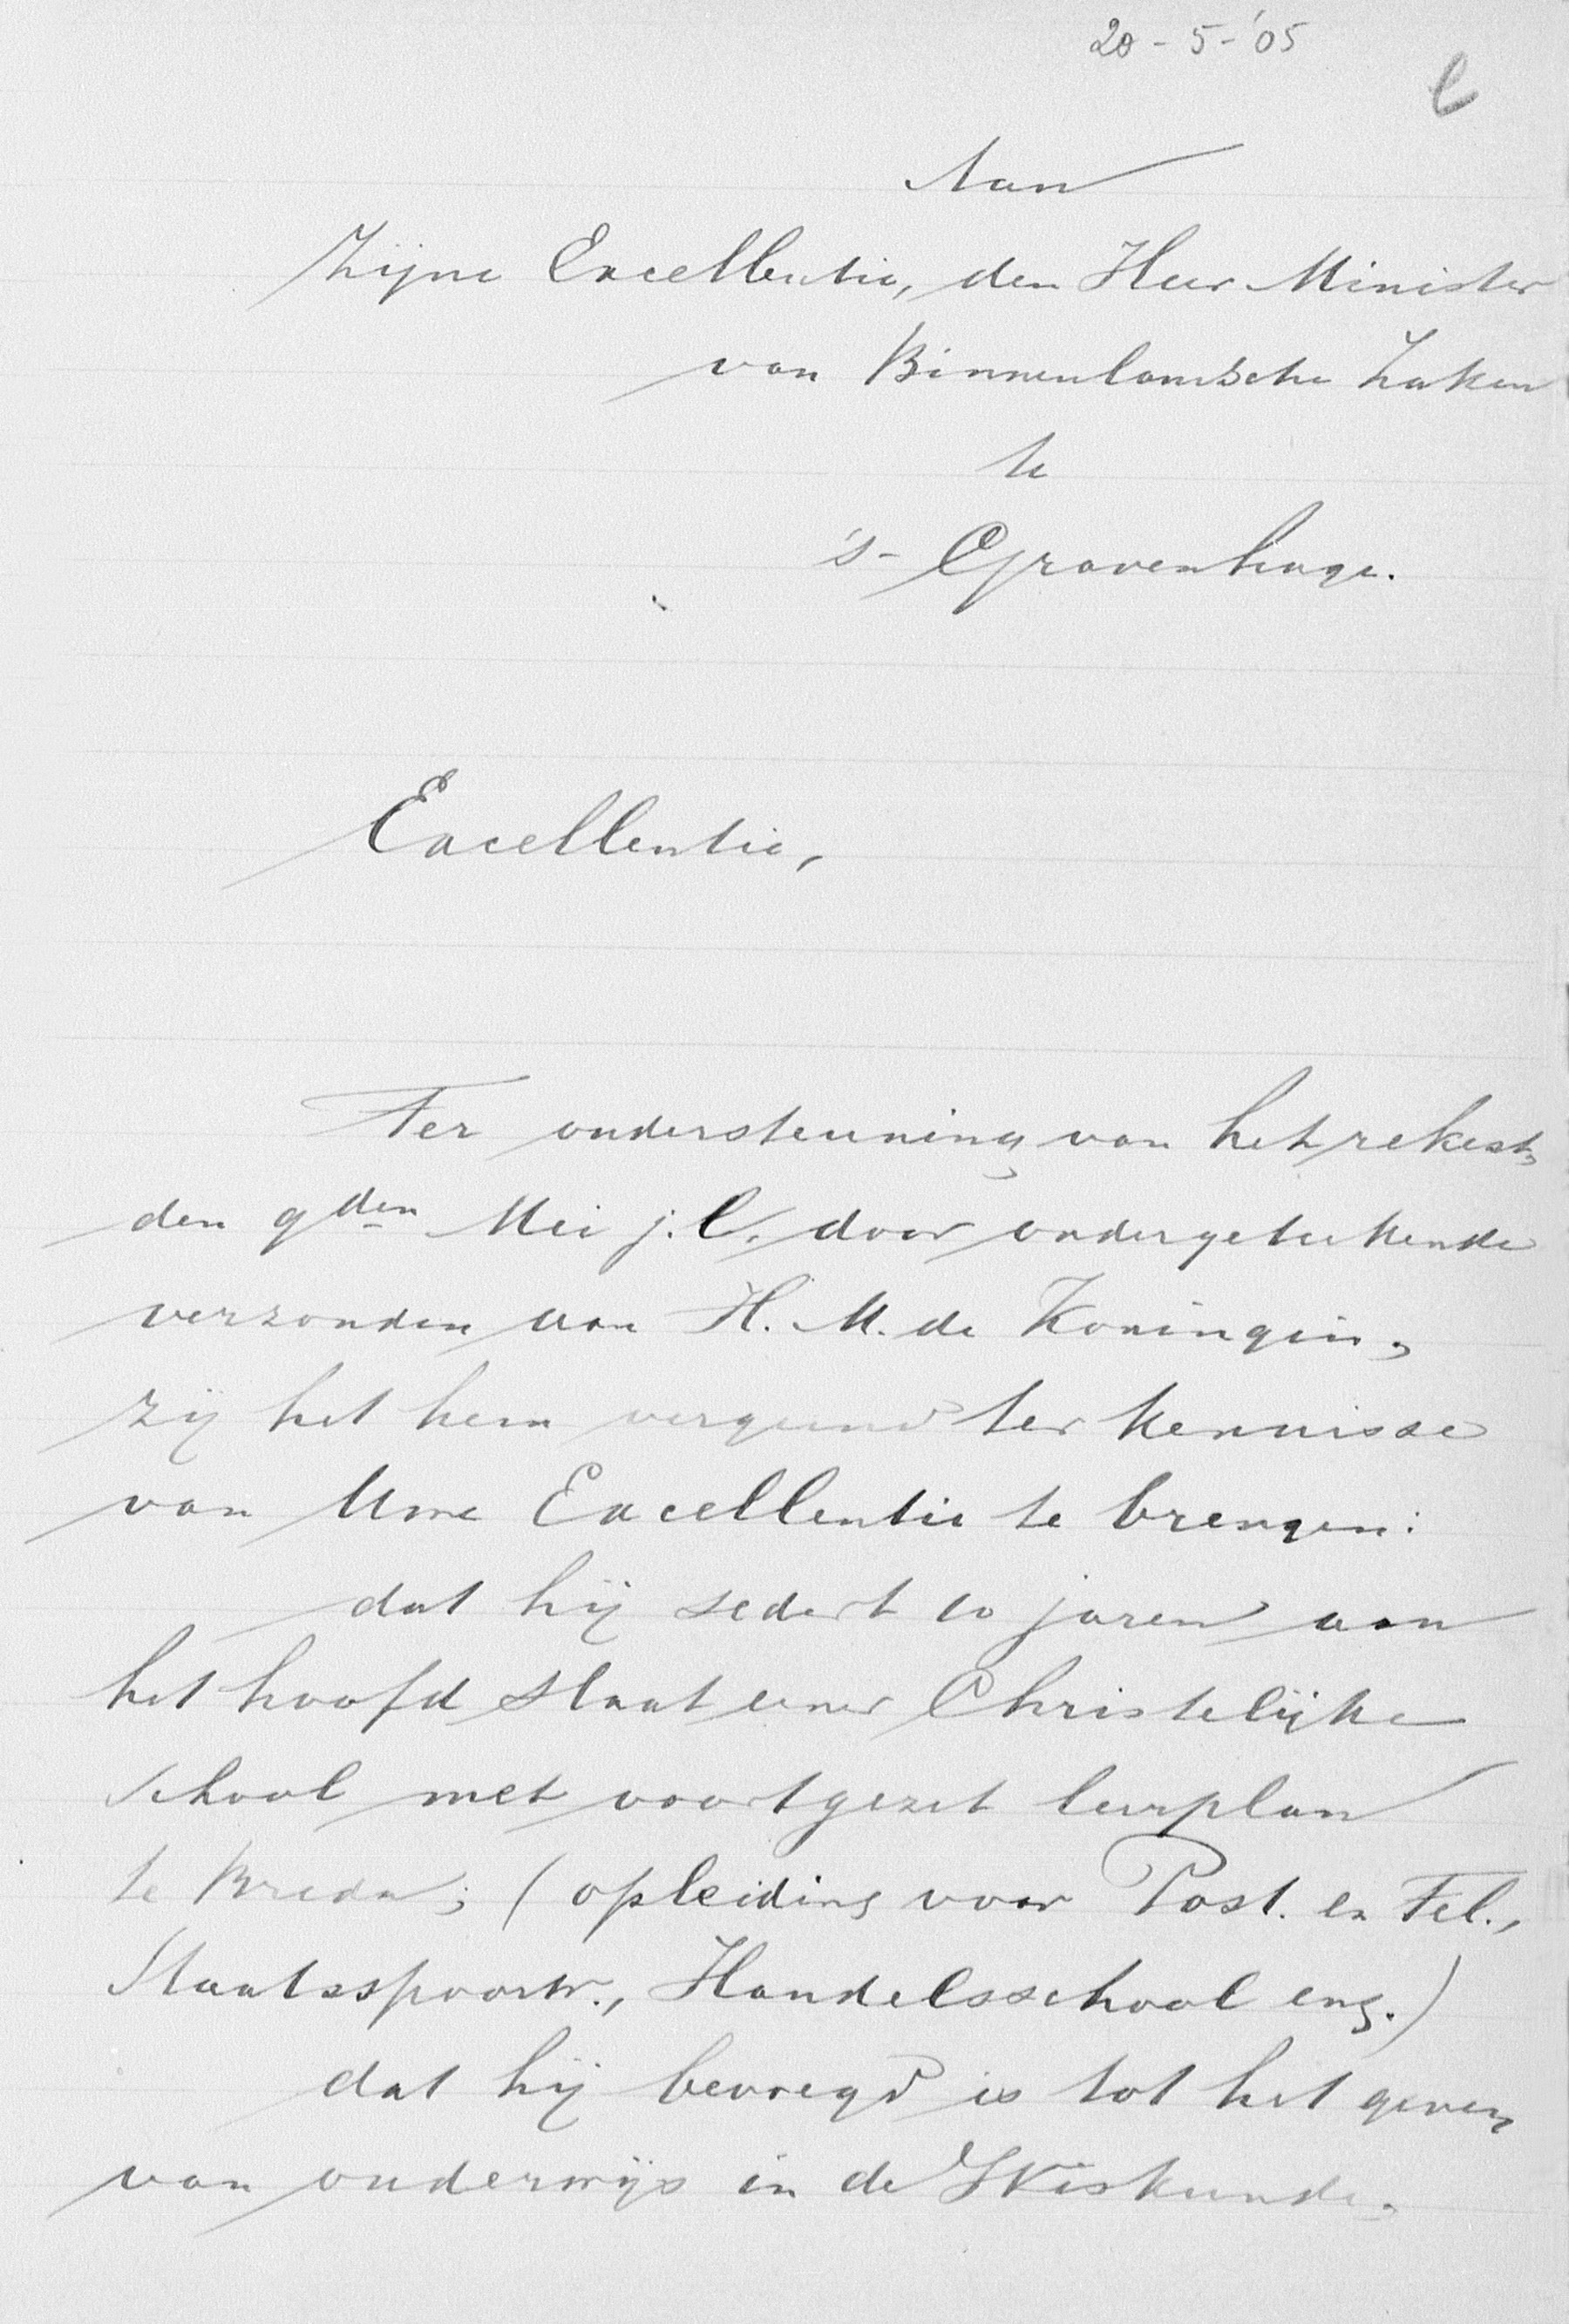 20-5-'05
Aan
Zijne Excellentie, den Heer Minister
van Binnenlandsche Zaken
te
's-Gravenhage.
Excellentie,
Ter ondersteuning van het rekest,
den 9den Mei j.l. door ondergeteekende
verzonden aan H. M. de Koningin,
zij het hem vergund ter kennisse
van Uwe Excellentie te brengen:
dat hij sedert 10 jaren aan
het hoofd staat eener Christelijke
school met voortgezet leerplan
te Breda; (opleiding voor Post. en Tel.,
Staatsspoorw., Handelsschool enz.)
dat hij bevoegd is tot het geven
van onderwijs in de Wiskunde,